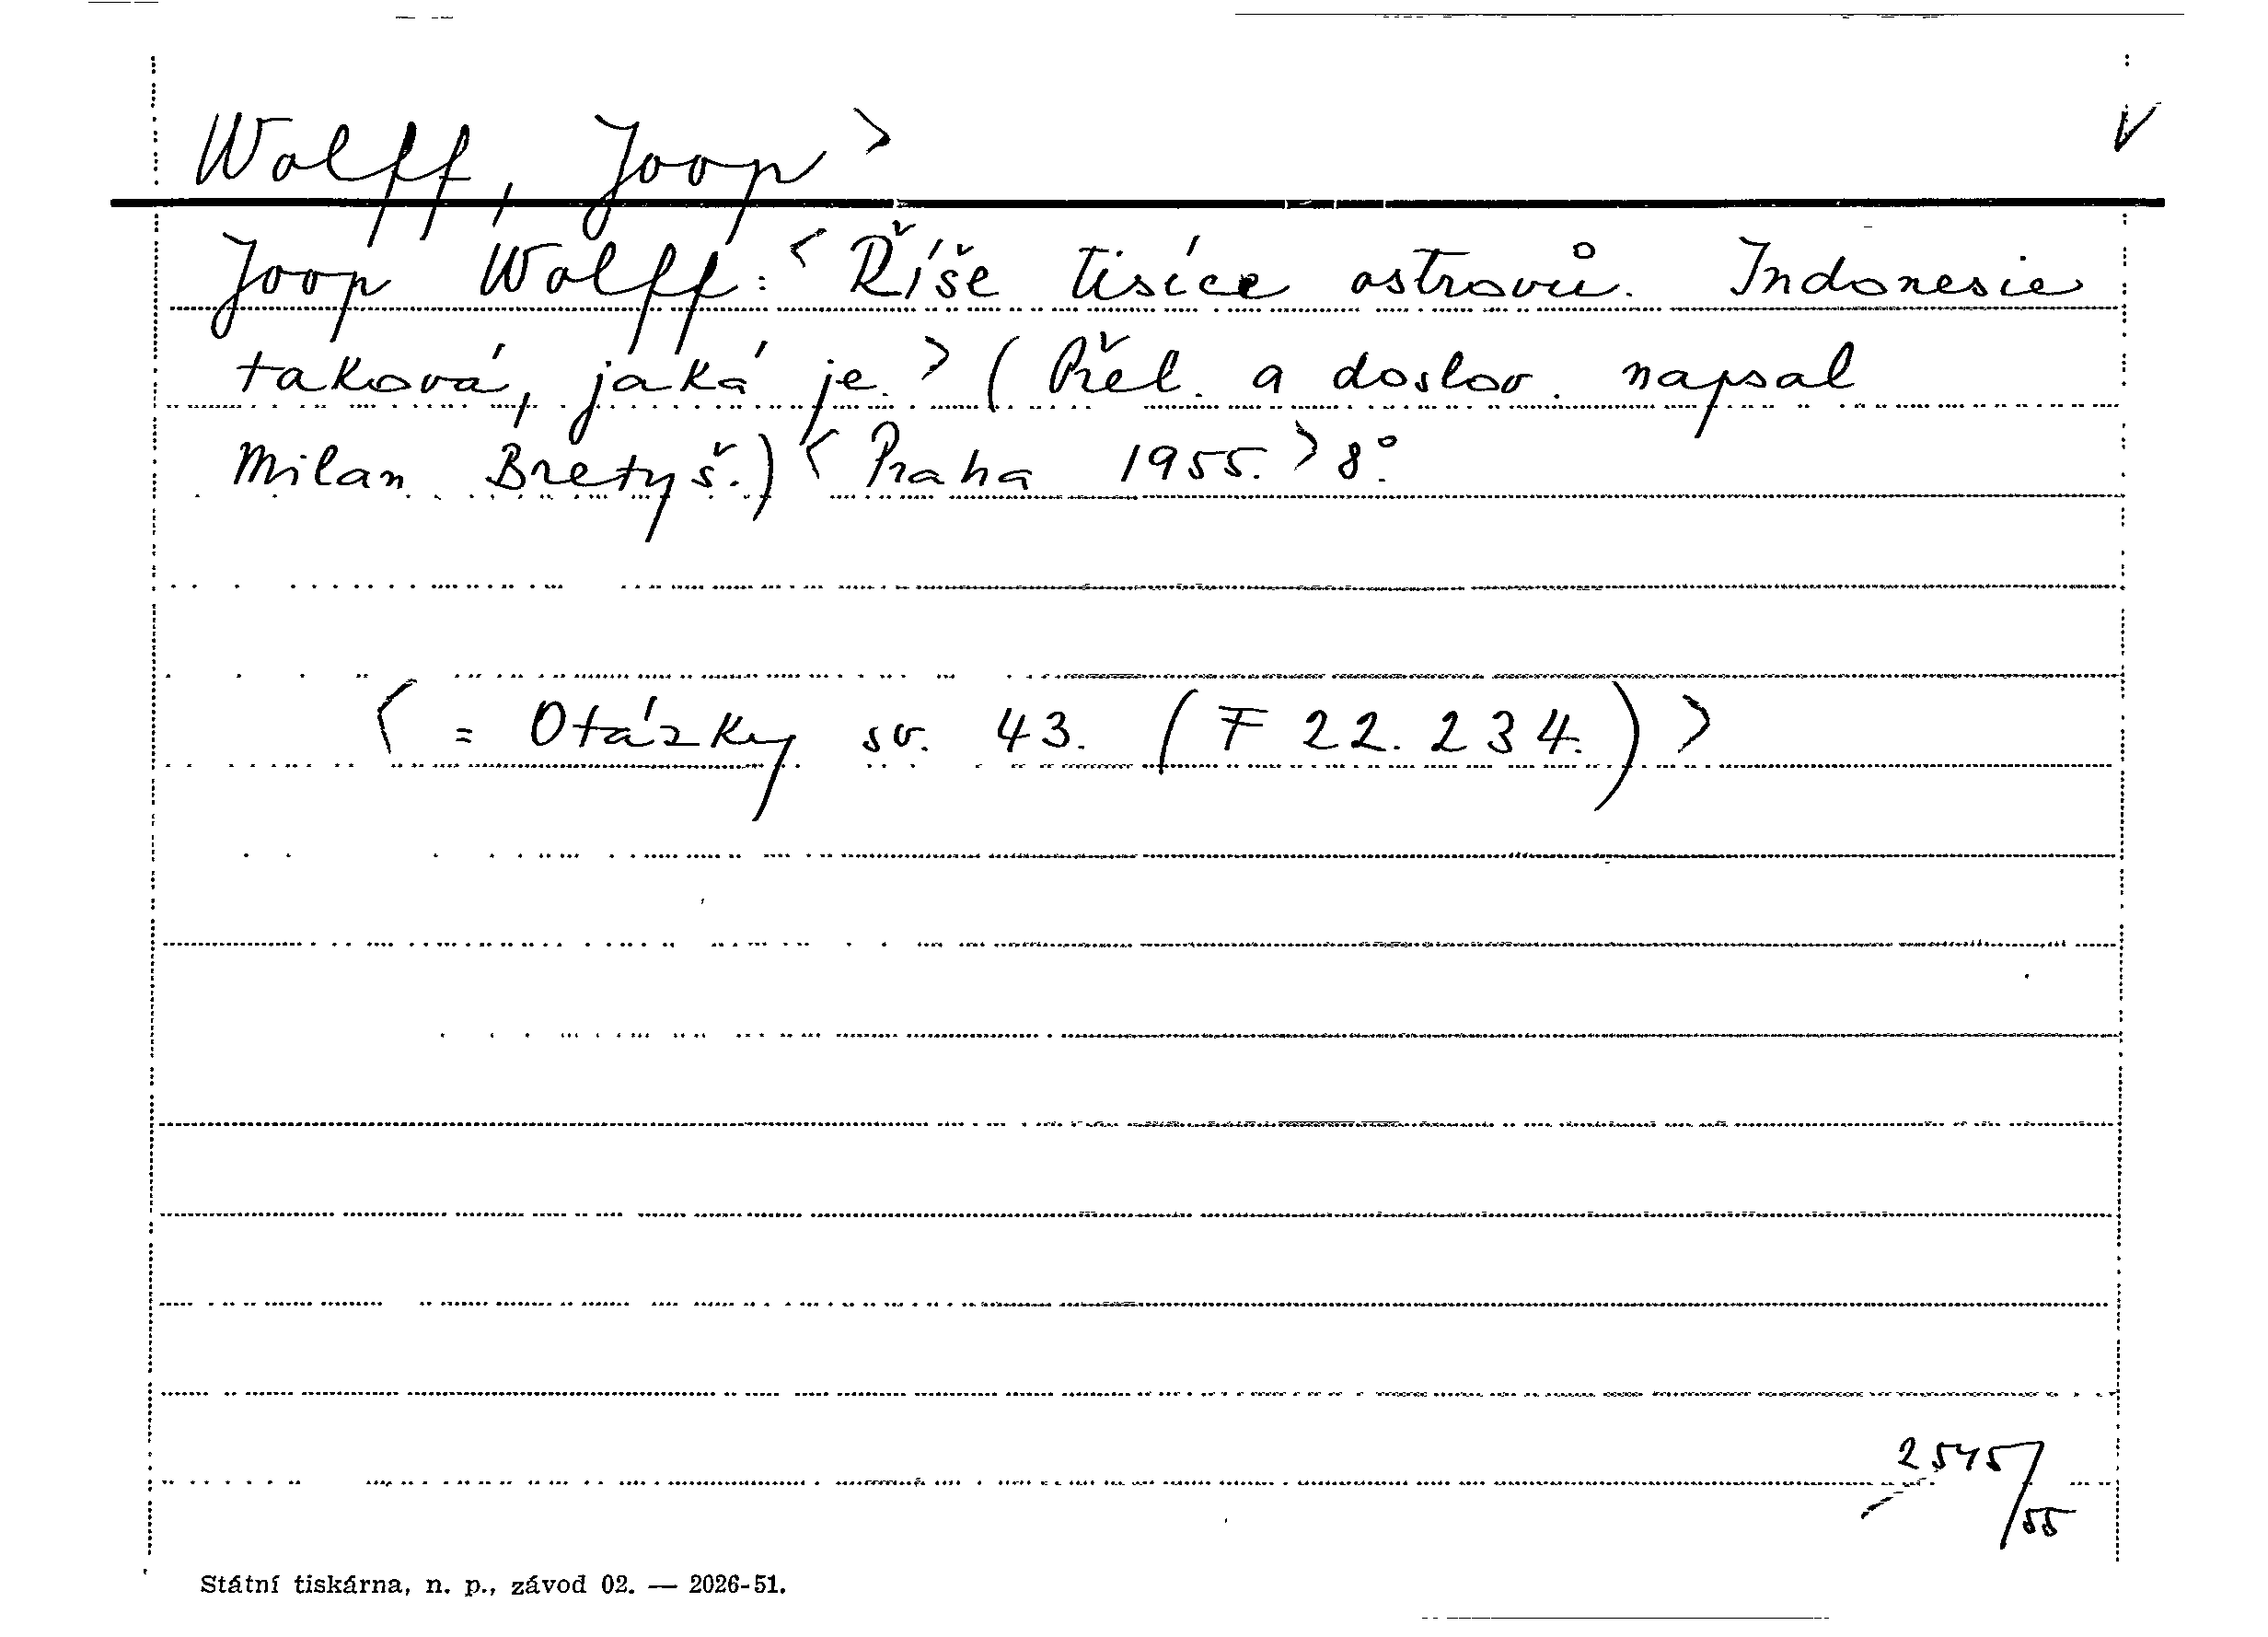 Wolff, Joop > V
Joop Wolff: < Říše tisíce ostrovů. Indonesie
taková, jaká je. > (Přel. a doslov. napsal
Milan Bretyš.) < Praha 1955. > 8°.
< = Otázky sv. 43. (F 22.234.) >
2545/55
Státní tiskárna, n. p., závod 02. — 2026-51.